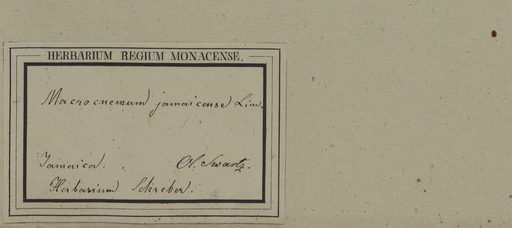 HERBARIUM REGIUM MONACENSE.
Macrocnemum jamaicense Linn.
Jamaica. Ol. Swartz.
Herbarium Schreber.